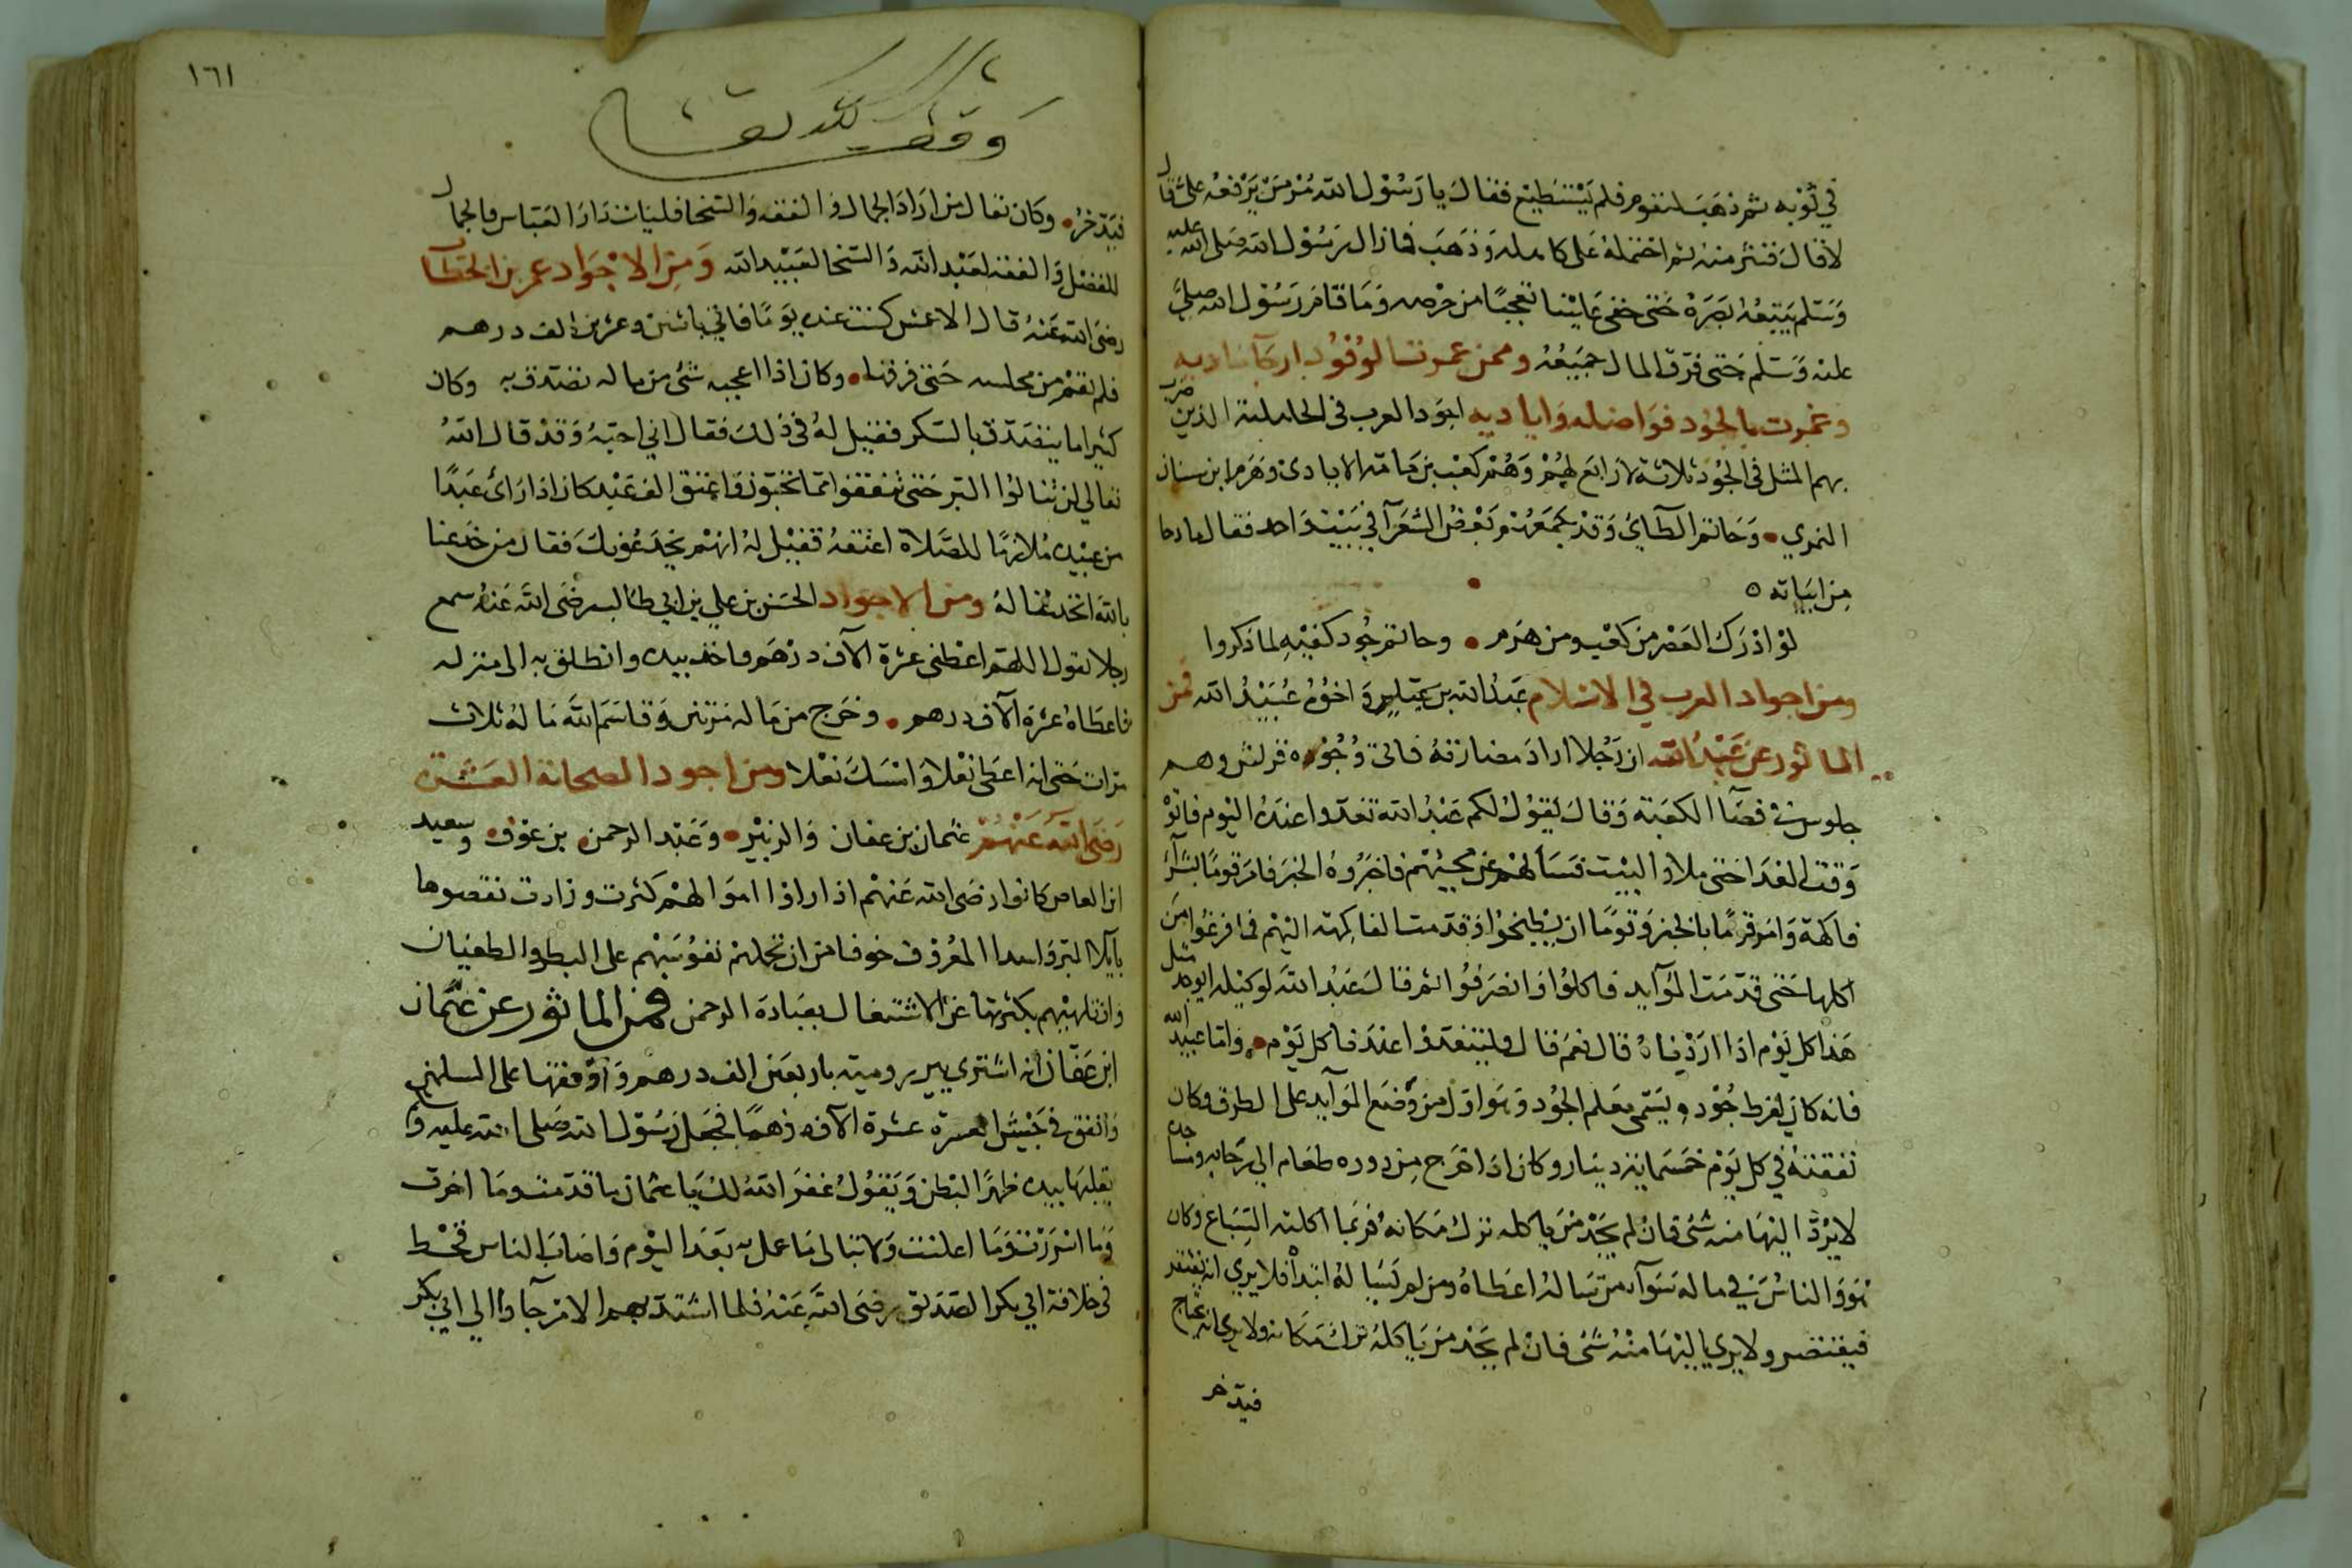 في ثوبه ثم ذهب ليقوم فلم يستطيع فقال يا رسول الله مر من يرفعه علي قال
لا قال فنثر منه ثم احتمله على كاهله وذهب فما زال رسول الله صلى الله عليه
وسلم يتبعه بصره حتى خفي علينا تعجبا من حرصه وما قام رسول الله صلى
عليه وسلم حتى فرق المال جميعه وممن عمرت الوفود ارجآ ناديه
وغمرت بالجود فواضله واياديه اجود العرب في الجاهلية الذين ضرب
بهم المثل في الجود ثلاثة لا رابع لهم وهم كعب بن مامة الايادي وهرم ابن سنان
المري وحاتم الطآي وقد جمعهم بعض الشعرآ في بيت واحد فقال مادحا
من ابياته ٥
لو ادرك العصر من كعب ومن هرم • وحاتم جود كفيه لما ذكروا
ومن اجواد العرب في الاسلام عبد الله بن عباس واخوه عبيد الله فمن
الماثور عن عبد الله ان رجلا اراد مضاررته فاتى وجوه قريش وهم
جلوس في فضآ الكعبة وقال يقول لكم عبد الله تغدوا عندى اليوم فاتوْ
وقت الغدا حتى ملاوا البيت فسألهم عن مجيئهم فاخبروه الخبر فامر قوما بشرآ
فاكهة وامر قوما بالخبز وقوما ان يطبخوا وقدمت الفاكهة اليهم فما فرغوا من
اكلها حتى قدمت الموآيد فاكلوا وانصرفوا ثم قال عبد الله لوكيله ايوجد مثل
هذا كل يوم اذا اردناه قال نعم قال فليتغدوا عندنا كل يوم • واما عبيد الله
فانه كان لفرط جوده يسمى معلم الجود وهو اول من وضع الموآيد على الطرق وكان
نفقته في كل يوم خمسماية دينار وكان اذا اخرج من دوره طعام الى رحابه ومساجده
لا يردّ اليها منه شئ فان لم يجد من ياكله ترك مكانه فربما اكلته السباع وكان
هو والناس في ماله سوآ من سأله اعطاه ومن لم يسأله ابتدأ فلا يري انه يفتقر
فيقتصر ولا يري اليها منه شئ فان لم يجد من ياكله ترك مكانه ولا يري انه يحتاج
فيدخر
١٦١
وقف لله تعالى
فيدخر • وكان يقال من اراد الجمال والفقه والسخا فليات دار العباس فالجمال
للفضل والفقه لعبد الله والسخا لعبيد الله ومن الاجواد عمر بن الخطاب
رضي الله عنه قال الاعمش كنت عنده يوما فاتي باثنين وعشرين الف درهم
فلم يقم من مجلسه حتى فرقها • وكان اذا اعجبه شئ من ماله تصدق به وكان
كثيرا ما يتصدق بالسكر فقيل له في ذلك فقال اني احبه وقد قال الله
تعالي لن تنالوا البر حتى تنفقوا مما تحبون واعتق الف عبد كان اذا رائ عبدا
من عبيده ملازما للصلاة اعتقه فقيل له انهم يخدعونك فقال من خدعنا
بالله انخدعنا له ومن الاجواد الحسن بن علي بن ابي طالب رضي الله عنه سمع
رجلا يقول اللهم اعطني عشرة الآف درهم فاخذ بيده وانطلق به الى منزله
فاعطاه عشرة الآف درهم • وخرج من ماله مرتين وقاسم الله ماله ثلاث
مرات حتى انه اعطى نعلا وامسك نعلا ومن اجود الصحابة العشرة
رضي الله عنهم عثمان بن عفان والزبير • وعبد الرحمن بن عوف • وسعيد
ابن العاص كانوا رضي الله عنهم اذا راوا اموالهم كثرت وزادت نقصوها
بايلآ البر واسدا المعروف خوفا من ان تحملهم نفوسهم على البطر والطغيان
وان تلهيهم بكثرتها عن الاشتغال بعبادة الرحمن فمن الماثور عن عثمان
ابن عفان انه اشترى بير رومية باربعين الف درهم وآوقفها على المسلمين
وانفق في جيش العسرة عشرة الآف درهما فجعل رسول الله صلى الله عليه وآ
يقلبها بيده ظهرا لبطن ويقول غفر الله لك يا عثمان ما قدمت وما اخرت
وما اسررت وما اعلنت ولا تبالى ما عمل به بعد اليوم واصاب الناس قحط
في خلافة ابي بكر الصديق رضي الله عنه فلما اشتد بهم الامر جآوا الي ابي بكر